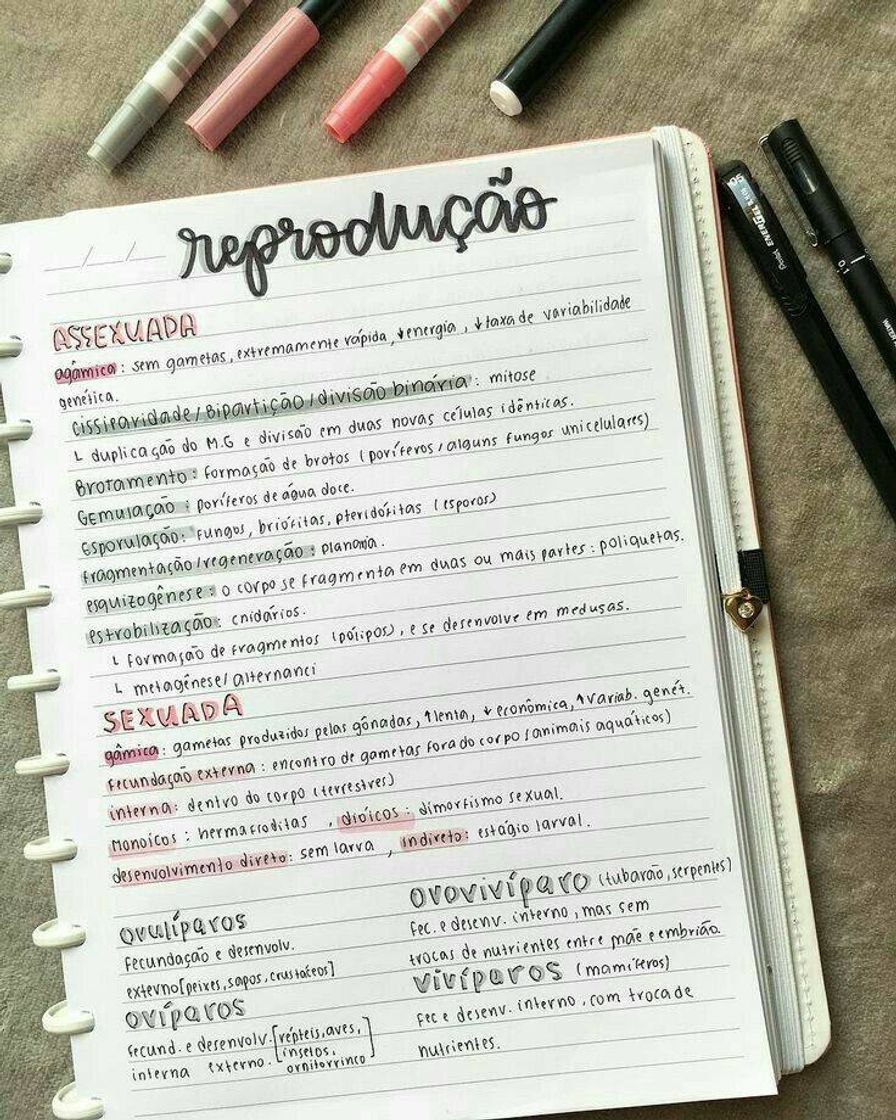 reprodução
ASSEXUADA
agâmica: sem gametas, extremamente rápida, ↓energia, ↓taxa de variabilidade
genética.
cissiparidade/Bipartição/divisão binária: mitose
└ duplicação do M.G e divisão em duas novas células idênticas.
Brotamento: formação de brotos (poríferos/alguns fungos unicelulares)
Gemulação: poríferos de água doce.
Esporulação: Fungos, briófitas, pteridófitas (esporos)
Fragmentação/regeneração: planaria.
esquizogênese: o corpo se fragmenta em duas ou mais partes: poliquetas.
estrobilização: cnidários.
└ formação de fragmentos (pólipos), e se desenvolve em medusas.
└ metagênese/alternanci
SEXUADA
gâmica: gametas produzidos pelas gônadas, ↑lenta, ↓econômica, ↑variab. genét.
Fecundação externa: encontro de gametas fora do corpo (animais aquáticos)
interna: dentro do corpo (terrestres)
Monoicos: hermafroditas, dióicos: dimorfismo sexual.
desenvolvimento direto: sem larva, indireto: estágio larval.
ovulíparos
Fecundação e desenvolv.
externo[peixes, sapos, crustáceos]
ovíparos
Fecund. e desenvolv. [répteis, aves,
interna externo. insetos,
ornitorrinco]
ovovivíparo (tubarão, serpentes)
Fec. e desenv. interno, mas sem
trocas de nutrientes entre mãe e embrião.
vivíparos (mamíferos)
Fec e desenv. interno, com troca de
nutrientes.
0.5 ENERGEL Pentel
0.1